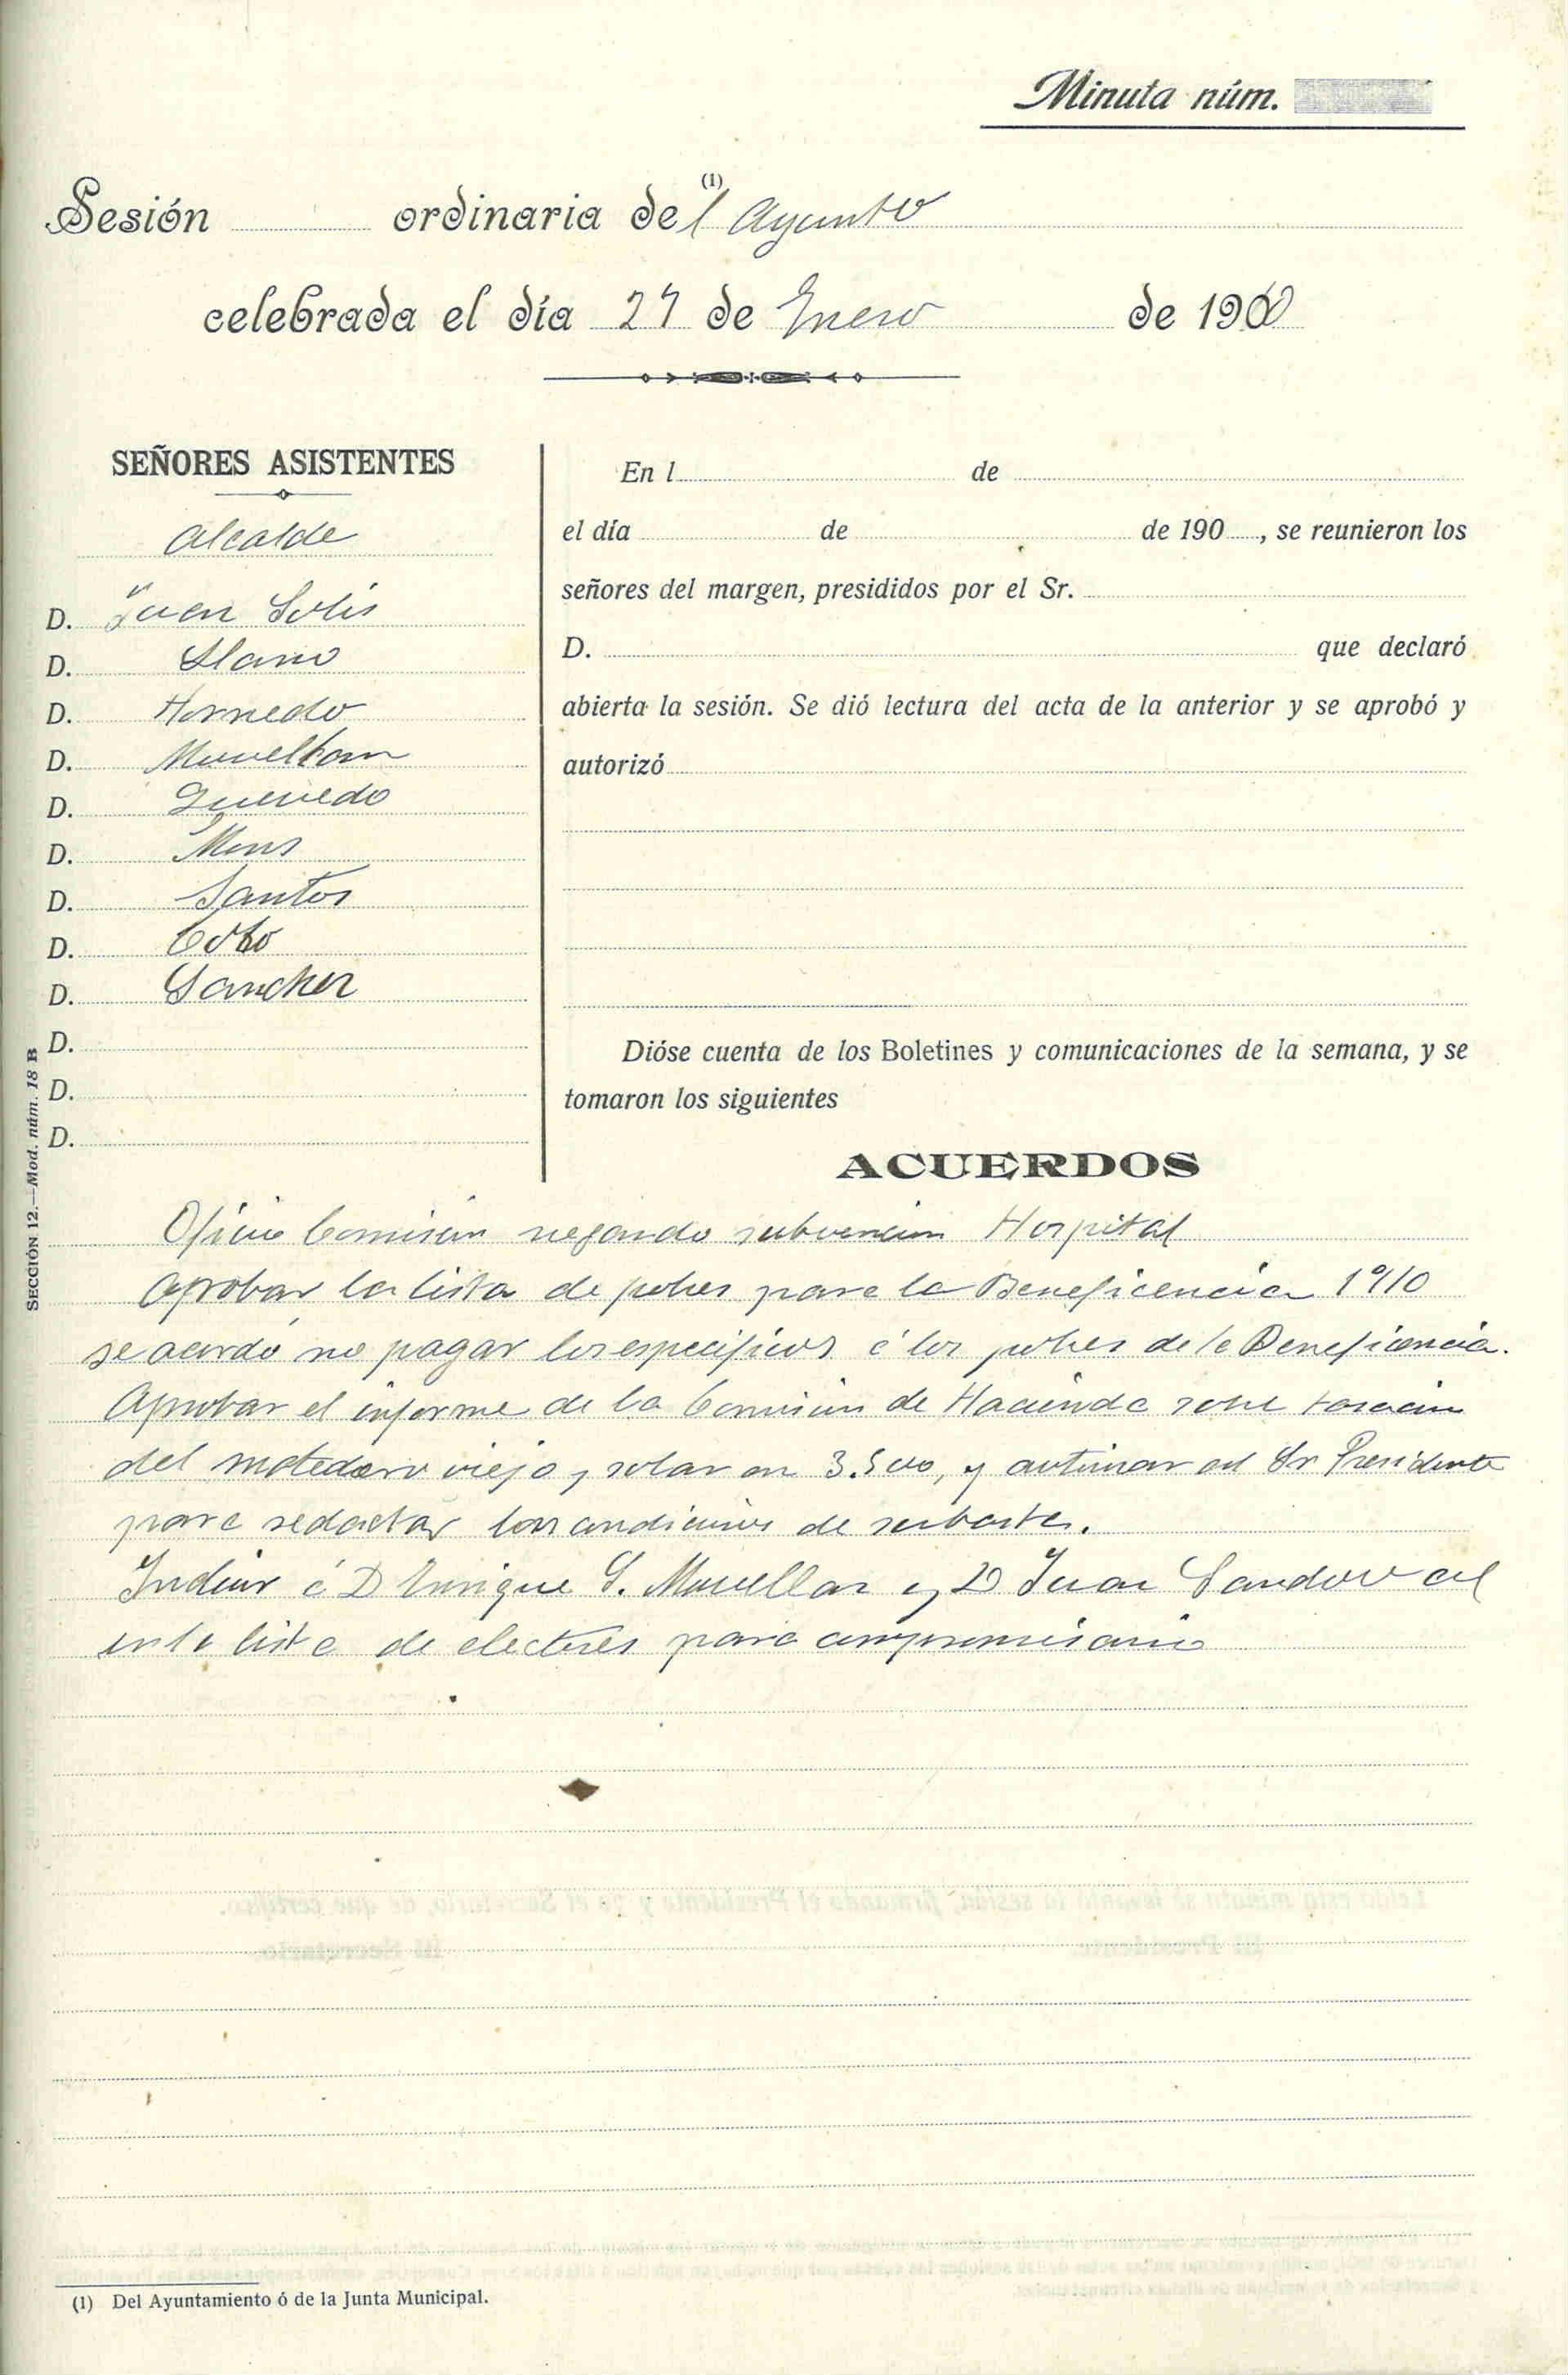 Minuta núm.
Sesión ordinaria del (1) Ayunto
celebrada el día 27 de Enero de 1910
SEÑORES ASISTENTES
Alcalde
D. Juan Solis
D. Llano
D. Hornedo
D.
D. Quevedo
D. Mons
D. Santos
D. Cobo
D. Sanchez
D.
D.
D.
En l de
el día de de 190 , se reunieron los
señores del margen, presididos por el Sr.
D. que declaró
abierta la sesión. Se dió lectura del acta de la anterior y se aprobó y
autorizó
Dióse cuenta de los Boletines y comunicaciones de la semana, y se
tomaron los siguientes
ACUERDOS
Oficio Comision negando subvencion Hospital
Aprobar la lista de pobres para la Beneficencia 1910
se acordó no pagar los especificos á los pobres de la Beneficencia.
Aprobar el informe de la Comision de Hacienda sobre tasacion
del matadero viejo y solar en 3.500, y autorizar al Sr Presidente
para redactar las condiciones de subasta.
Incluir á D Enrique S. y D Juan Sandoval
en la lista de electores para compromisario
SECCIÓN 12.—Mod. núm. 18 B
(1) Del Ayuntamiento ó de la Junta Municipal.